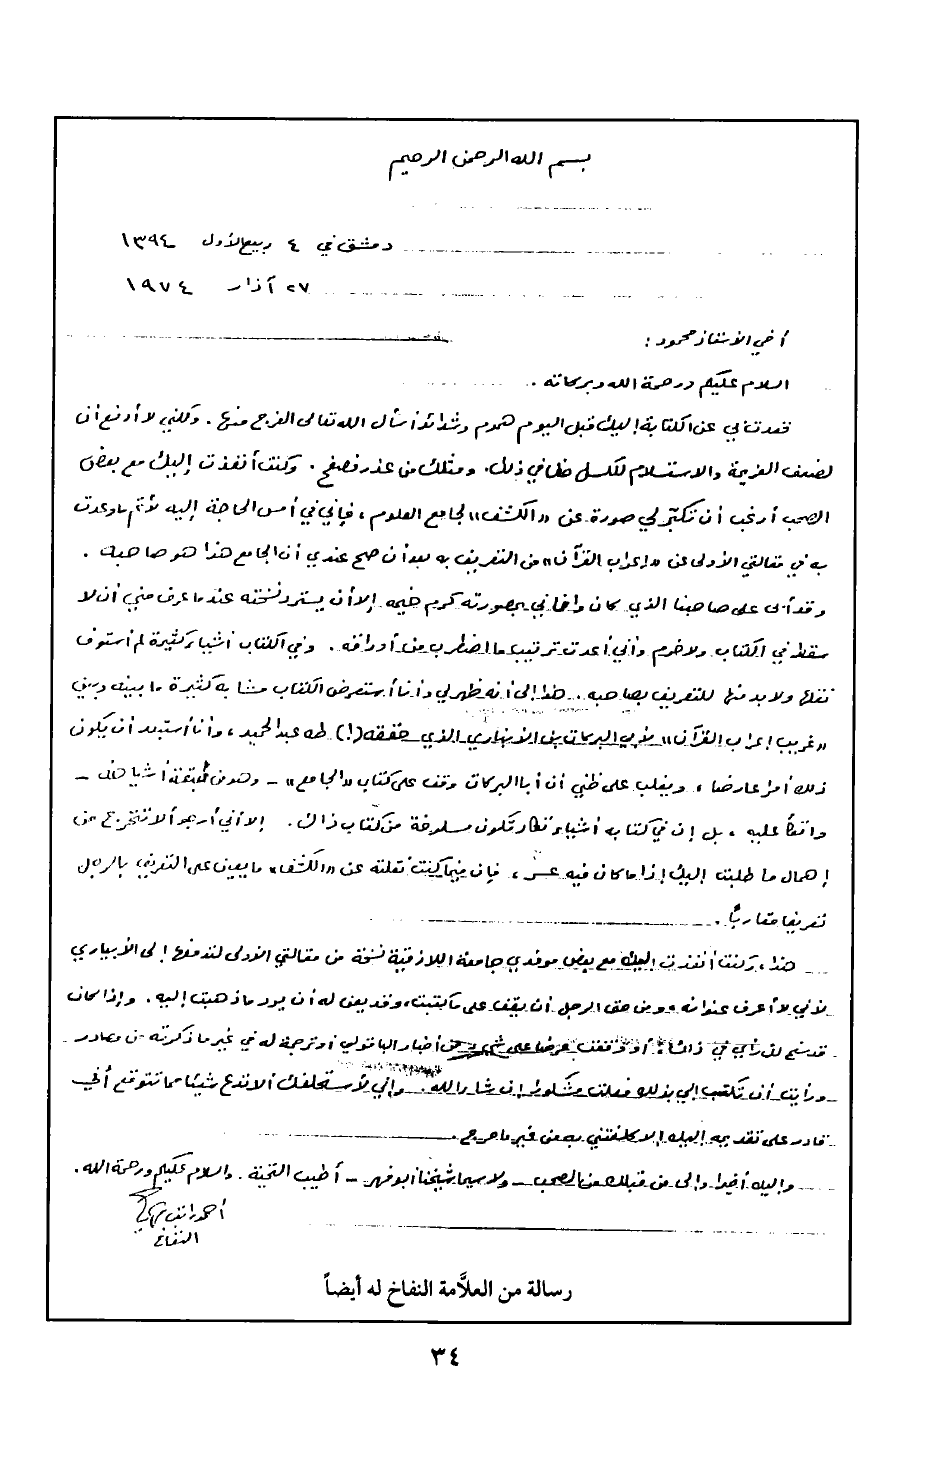 بسم الله الرحمن الرحيم
دمشق في ٤ ربيع الأول ١٣٩٤
٢٧ آذار ١٩٧٤
أخي الأستاذ محمود :
السلام عليكم ورحمة الله وبركاته .
قعدت بي عن الكتابة إليك قبل اليوم هموم وشدائد أسأل الله تعالى الفرج منها . ولكني لا أدفع أن
لضعف العزيمة والاستسلام للكسل حظا في ذلك . ومثلك من عذر فصفح . وكنت أنفذت إليك مع بعض
الصحب أرغب أن تكبّر لي صورة عن «الكشف» لجامع العلوم ، فإني في أمس الحاجة إليه لأتم ما وعدت
به في مقالتي الأولى عن «إعراب القرآن» من التعريف به بعد أن صح عندي أن الجامع هذا هو صاحبه .
وقد أبى على صاحبنا الذي كان وافاني بمصورته كرم خيمه إلا أن يسترد نسخته عندما عرف مني أن لا
سقط في الكتاب ولا خرم وأني أعدت ترتيب ما اضطرب من أوراقه . وفي الكتاب أشياء كثيرة لم أستوف
نقلها ولا بد منها للتعريف بصاحبه . هذا إلى أنه ظهر لي وأنا أستعرض الكتاب مشابه كثيرة ما بينه وبين
«غريب إعراب القرآن» لأبي البركات بن الأنباري الذي حققه (!) طه عبد الحميد ، وأنا أستبعد أن يكون
ذلك أمرا عارضا ، ويغلب على ظني أن أبا البركات وقف على كتاب «الجامع» - وهو من طبقة أشياخه -
واتكأ عليه ، بل إن في كتابه أشياء تكاد تكون مسلوخة من كتاب ذاك . إلا أني أرجو ألا تتحرج من
إهمال ما طلبت إليك إذا ما كان فيه عسر ، فإن فيما كنت نقلته عن «الكشف» ما يعين على التعريف بالرجل
تعريفا مقاربا .
هذا ، وكنت أنفذت إليك مع بعض موفدي جامعة اللاذقية نسخة من مقالتي الأولى لتدفعها إلى الأبياري
لأني لا أعرف عنوانه ، ومن حق الرجل أن يقف على ما كتبت ، وقد يعن له أن يرد ما ذهبت إليه . وإذا كان
قد سنح لك رأي في ذلك أو وقفت عرضا على شيء من أخبار الباقولي أو ترجمة له في غير ما ذكرته من مصادر
ورأيت أن تكتب إلي بذلك فعلت مشكورا إن شاء الله . وإني لأستحلفك ألا تدع شيئا مما تتوقع أني
قادر على تقديمه إليك إلا كلفتني بعض غير ما حرج .
وإليك أخيرا وإلى من قبلك من الصحب - ولا سيما شيخنا أبو فهر - أطيب التحية . والسلام عليكم ورحمة الله .
أحمد راتب
النفاخ
رسالة من العلاَّمة النفاخ له أيضاً
٣٤